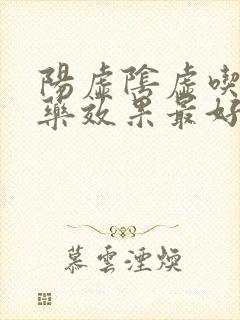 陽虛陰虛喫
藥效果最好
慕雲湮煙